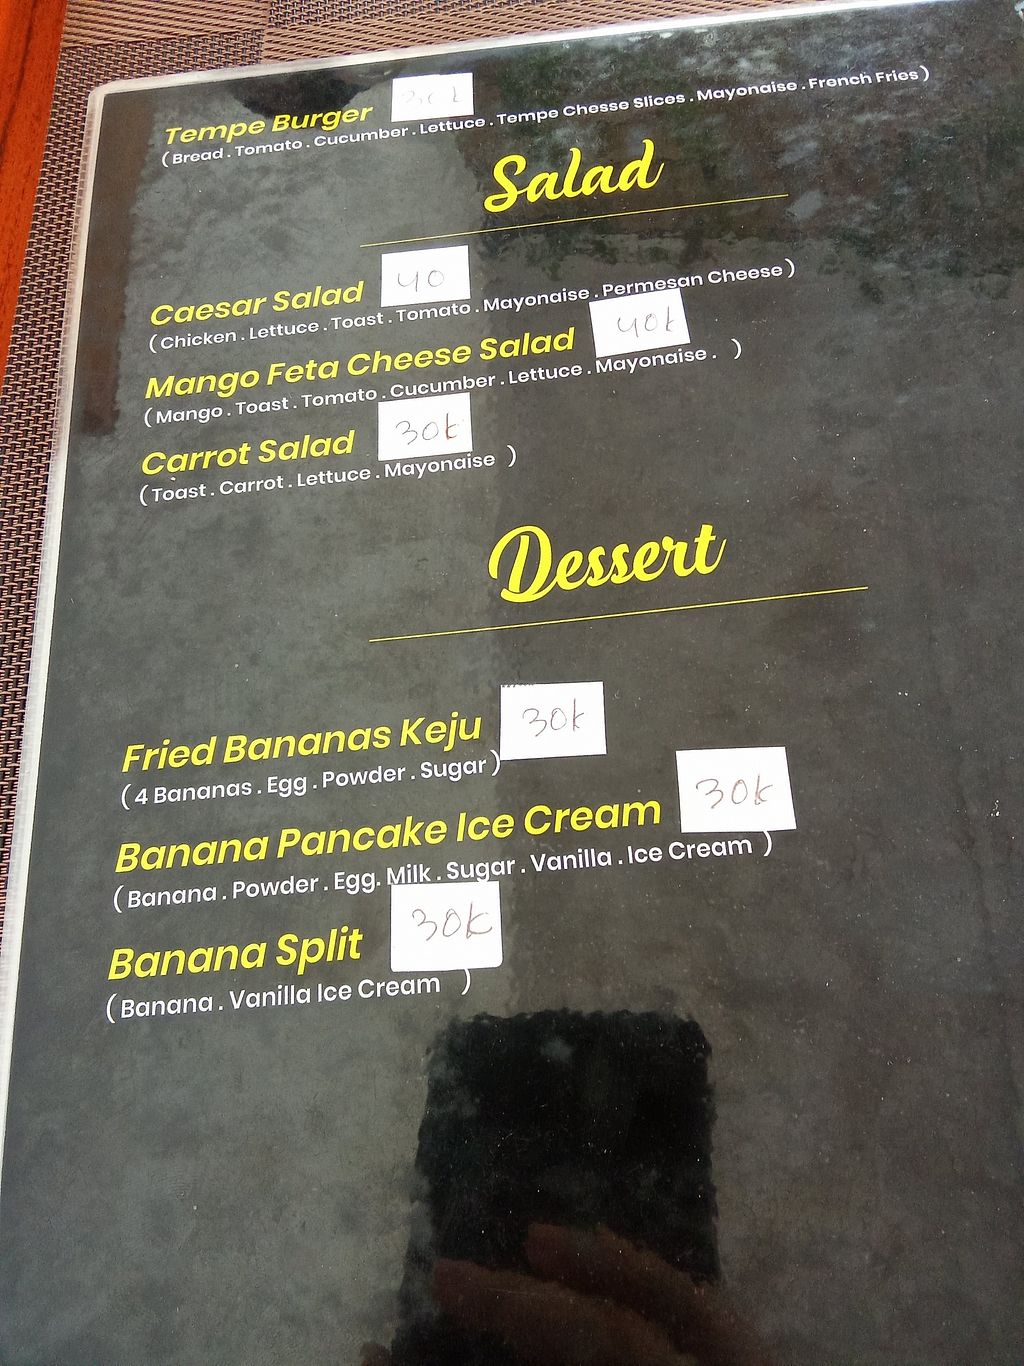 Tempe Burger
( Bread . Tomato . Cucumber . Lettuce . Tempe Chesse Slices . Mayonaise . French Fries )
Salad
Caesar Salad 40
( Chicken . Lettuce . Toast . Tomato . Mayonaise . Permesan Cheese )
Mango Feta Cheese Salad 40k
( Mango . Toast . Tomato . Cucumber . Lettuce . Mayonaise . )
Carrot Salad 30k
( Toast . Carrot . Lettuce . Mayonaise )
Dessert
Fried Bananas Keju 30k
( 4 Bananas . Egg . Powder . Sugar )
Banana Pancake Ice Cream 30k
( Banana . Powder . Egg. Milk . Sugar . Vanilla . Ice Cream )
Banana Split 30k
( Banana . Vanilla Ice Cream )